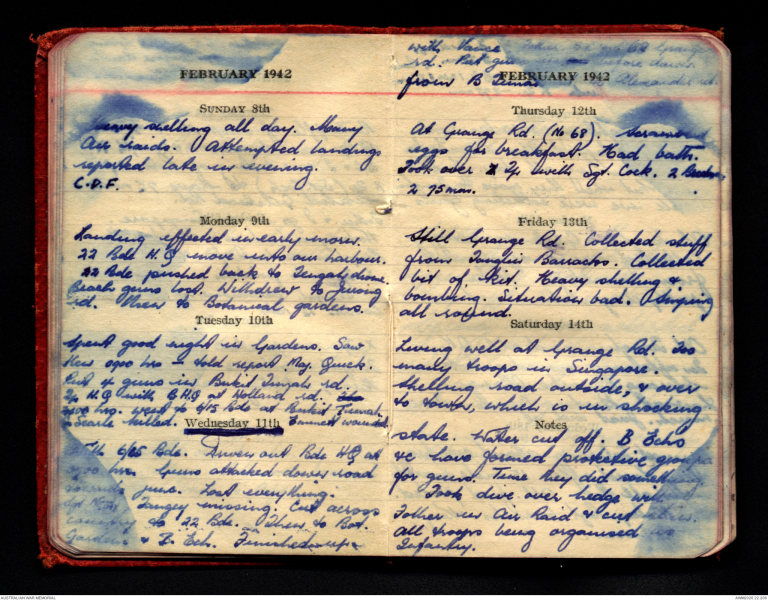 FEBRUARY 1942
SUNDAY 8th
Heavy shelling all day. Many
Air raids. Attempted landings
reported late in evening.
C.D.F.
Monday 9th
Landing effected in early morn.
22 Bde H.Q move into our harbour.
22 Bde pushed back to Tengah drome.
Beach guns lost. Withdrew to Jurong
rd. Then to Botanical gardens.
Tuesday 10th
Spent good night in Gardens. Saw
0900 hrs - told report Maj. Quick.
Put 4 guns in Bukit Timah rd.
H.Q with B.H.Q at Holland rd.
hrs. went to 6/15 Bde at Bukit Timah.
Searle killed. Emmett wounded.
Wednesday 11th
6/15 Bde. Driven out Bde HQ at
hrs. Guns attacked down road
towards junc. Lost everything.
Sgt missing. Cut across
country to 22 Bde. Then to Bot.
Gardens & B Ech. Finished up
with Vance
rd. Put gun before dawn
from B Timah Alexandra rd.
FEBRUARY 1942
Thursday 12th
At Grange Rd. (No 68). Scrambled
eggs for breakfast. Had bath.
Took over with Sgt. Cock. 2
2 75mm.
Friday 13th
Still Grange Rd. Collected stuff
from Tanglin Barracks. Collected
bit of kit. Heavy shelling &
bombing. Situation bad. Sniping
all round.
Saturday 14th
Living well at Grange Rd. Too
many troops in Singapore.
Shelling road outside, & over
to town, which is in shocking
Notes
state. Water cut off. B Ech
& we have formed protective group
for guns. Time they did something
Took dive over hedge with
Father in Air Raid & cut
all troops being organised as
Infantry.
AUSTRALIAN WAR MEMORIAL